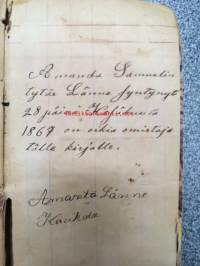 Amanda Samuelin
tytär Länne syntynyt
28 päivä Huhtikuuta
1867 on oikia omistaja
tälle kirjalle.
Amanta Länne
Kaukola